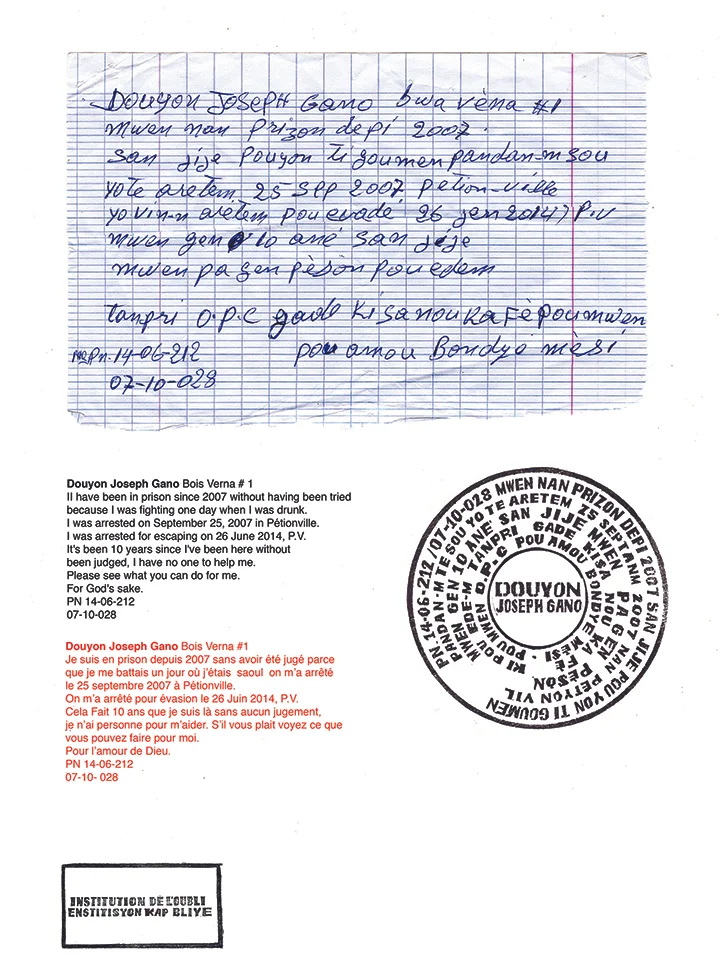 Douyon JosepH Gano bwa vèna #1
mwen nan prizon depi 2007.
san jije pouyon ti goumen pandan-m sou
yo te aretem 25 sep 2007 petion-ville
yo vin-n aretem pou evade 26 jen 2014) P.V
mwen gen 10 ané san jije
mwen pa gen pèsòn pou edem
tanpri O.P.C gade kisa nou ka Fè pou mwen
pou amou Bondye mèsi
Pn. 14-06-212
07-10-028
Douyon Joseph Gano Bois Verna # 1
II have been in prison since 2007 without having been tried
because I was fighting one day when I was drunk.
I was arrested on September 25, 2007 in Pétionville.
I was arrested for escaping on 26 June 2014, P.V.
It's been 10 years since I've been here without
been judged, I have no one to help me.
Please see what you can do for me.
For God's sake.
PN 14-06-212
07-10-028
Douyon Joseph Gano Bois Verna #1
Je suis en prison depuis 2007 sans avoir été jugé parce
que je me battais un jour où j'étais saoul on m'a arrêté
le 25 septembre 2007 à Pétionville.
On m'a arrêté pour évasion le 26 Juin 2014, P.V.
Cela Fait 10 ans que je suis là sans aucun jugement,
je n'ai personne pour m'aider. S'il vous plait voyez ce que
vous pouvez faire pour moi.
Pour l'amour de Dieu.
PN 14-06-212
07-10- 028
PN. 14-06-212 /07-10-028 MWEN NAN PRIZON DEPI 2007 SAN JIJE POU YON TI GOUMEN
PANDAN-M TE SOU YO TE ARETEM 25 SEPTANM 2007 NAN PETYON VIL
MWEN GEN 10 ANE SAN JIJE MWEN PA GEN PÈSÒN
KI POU EDE-M TANPRI GADE KISA NOU KA FÈ
POU MWEN O.P.C POU AMOU BONDYE MÈSI.
DOUYON
JOSEPH GANO
INSTITUTION DE L'OUBLI
ENSTITISYON KAP BLIYE